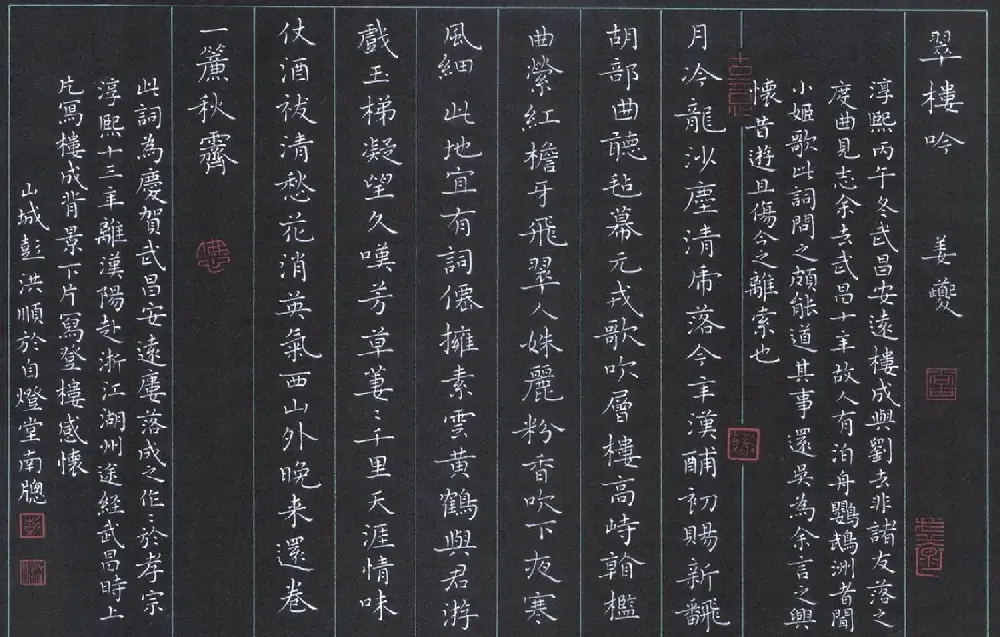 翠樓吟 姜夔
淳熙丙午冬武昌安遠樓成與劉去非諸友落之
度曲見志余去武昌十年故人有泊舟鸚鵡洲者聞
小姬歌此詞問之頗能道其事還吳為余言之興
懷昔遊且傷今之離索也
月冷龍沙塵清虎落今年漢酺初賜新翻
胡部曲聽氈幕元戎歌吹層樓高峙檻
曲縈紅檐牙飛翠人姝麗粉香吹下夜寒
風細此地宜有詞僊擁素雲黃鶴與君遊
戲玉梯凝望久嘆芳草萋〻千里天涯情味
仗酒祓清愁花消英氣西山外晚来還卷
一簾秋霽
此詞為慶賀武昌安遠樓落成之作〻於孝宗
淳熙十三年離漢陽赴浙江湖州途经武昌時上
片寫樓成背景下片寫登樓感懷
山城彭洪順於自燈堂南牕